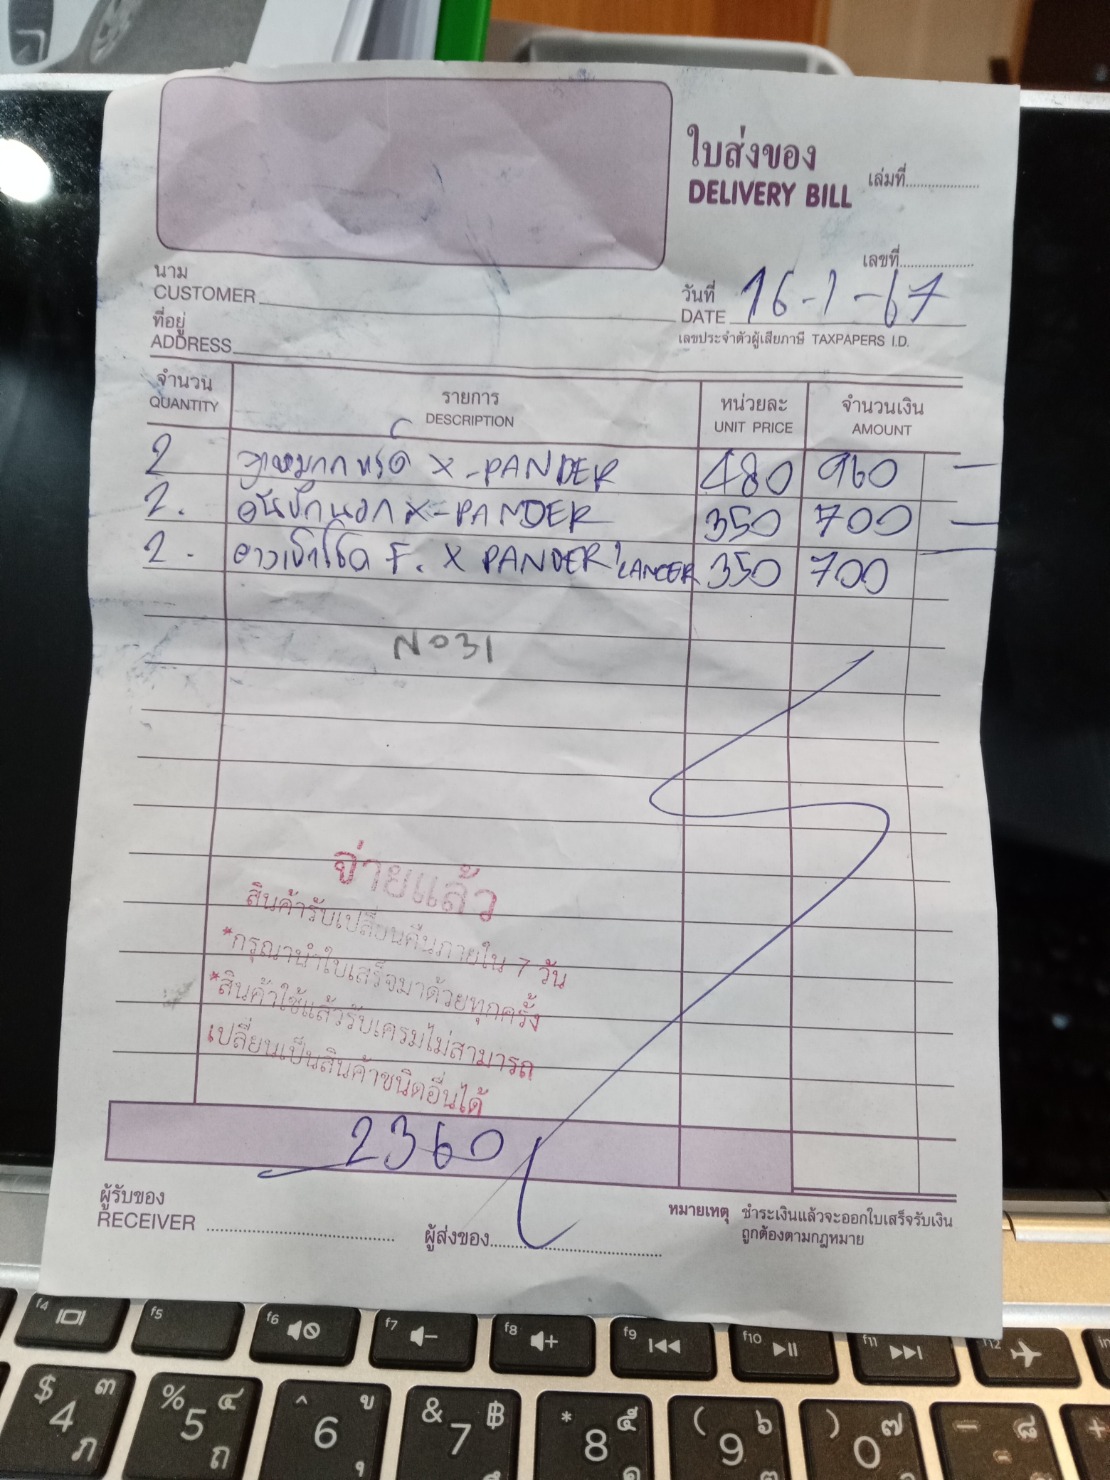 ใบส่งของ
DELIVERY BILL
เล่มที่
เลขที่
นาม
CUSTOMER
วันที่
DATE 16-1-67
ที่อยู่
ADDRESS
เลขประจำตัวผู้เสียภาษี TAXPAPERS I.D.
จำนวน รายการ หน่วยละ จำนวนเงิน
QUANTITY DESCRIPTION UNIT PRICE AMOUNT
2 ลูกหมาก X-PANDER 480 960 —
2. คันชักนอก X-PANDER 350 700 —
2. ยางเบ้าโช๊ค F. X PANDER LANCER 350 700
No31
จ่ายแล้ว
สินค้ารับเปลี่ยนคืนภายใน 7 วัน
*กรุณานำใบเสร็จมาด้วยทุกครั้ง
*สินค้าใช้แล้วรับเครมไม่สามารถ
เปลี่ยนเป็นสินค้าชนิดอื่นได้
2360
ผู้รับของ
RECEIVER
ผู้ส่งของ
หมายเหตุ ชำระเงินแล้วจะออกใบเสร็จรับเงิน
ถูกต้องตามกฎหมาย
f4 f5 f6 f7 f8 f9 f10 f11 f12
$ ๓ % ๔ ^ ข & ฿ * ๕ ( ๖ ) ๗ – ๘ +
4 ภ 5 ถ 6 ุ 7 ึ 8 ค 9 ต 0 จ - ข